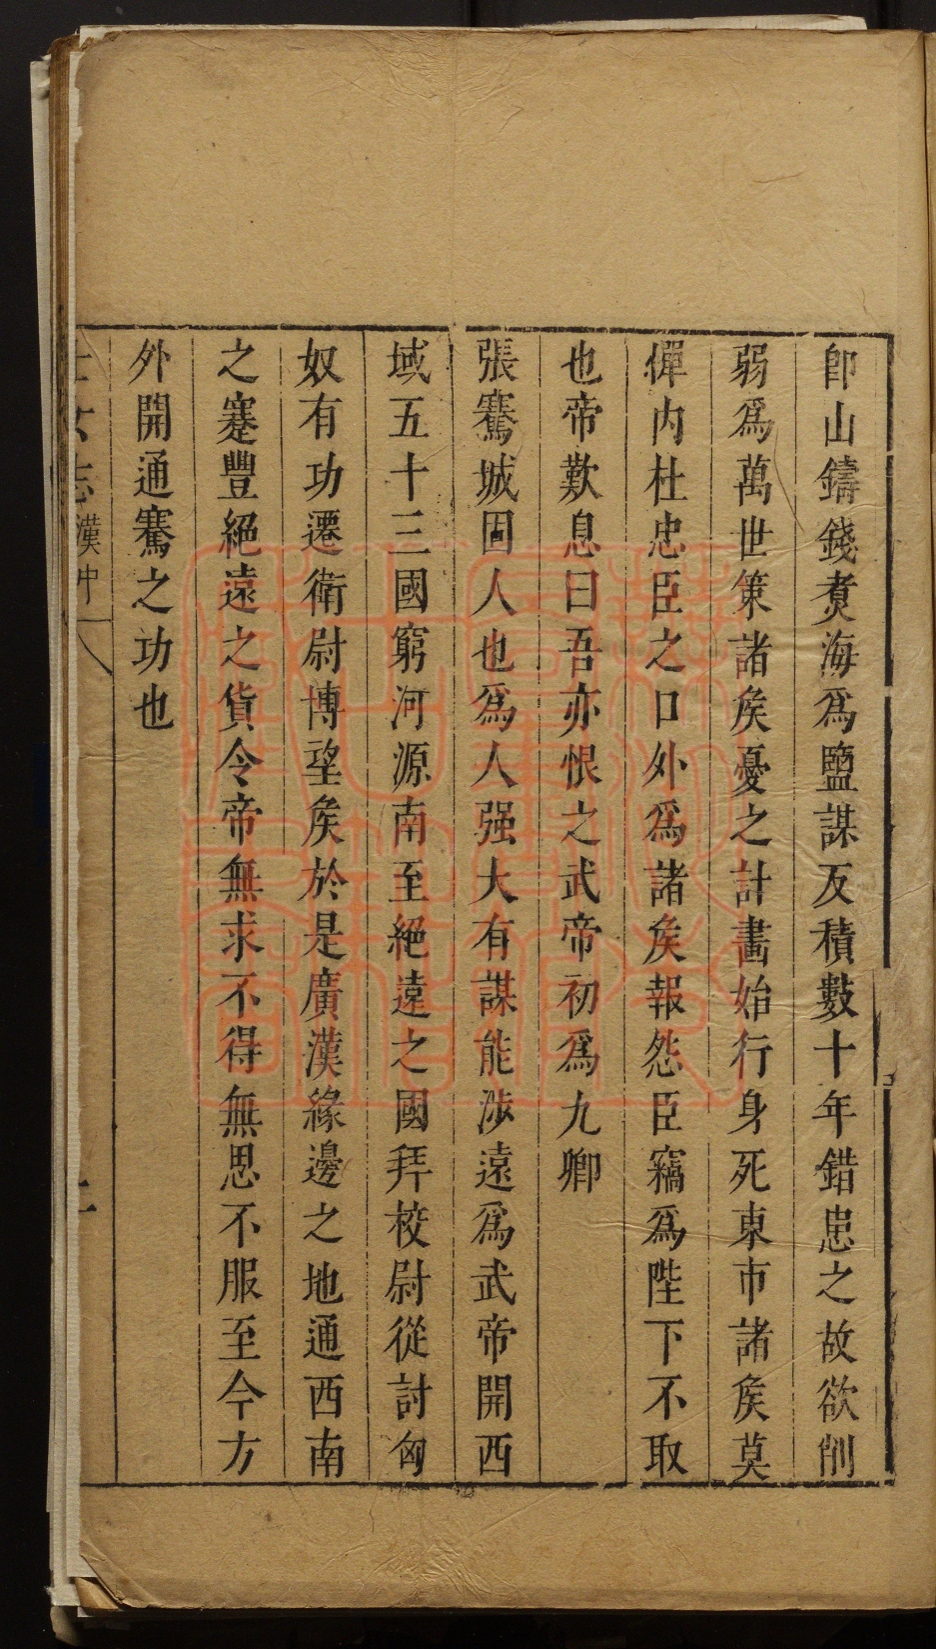 卽山鑄錢煑海爲鹽謀反積數十年錯患之故欲削
弱爲萬世策諸矦憂之計畫始行身死東市諸矦莫
憚內杜忠臣之口外爲諸矦報怨臣竊爲陛下不取
也帝歎息曰吾亦恨之武帝初爲九卿
張騫城固人也爲人强大有謀能涉遠爲武帝開西
域五十三國窮河源南至絕遠之國拜校尉從討匈
奴有功遷衛尉博望矦於是廣漢緣邊之地通西南
之蹇豐絕遠之貨令帝無求不得無思不服至今方
外開通騫之功也
士女志 漢中